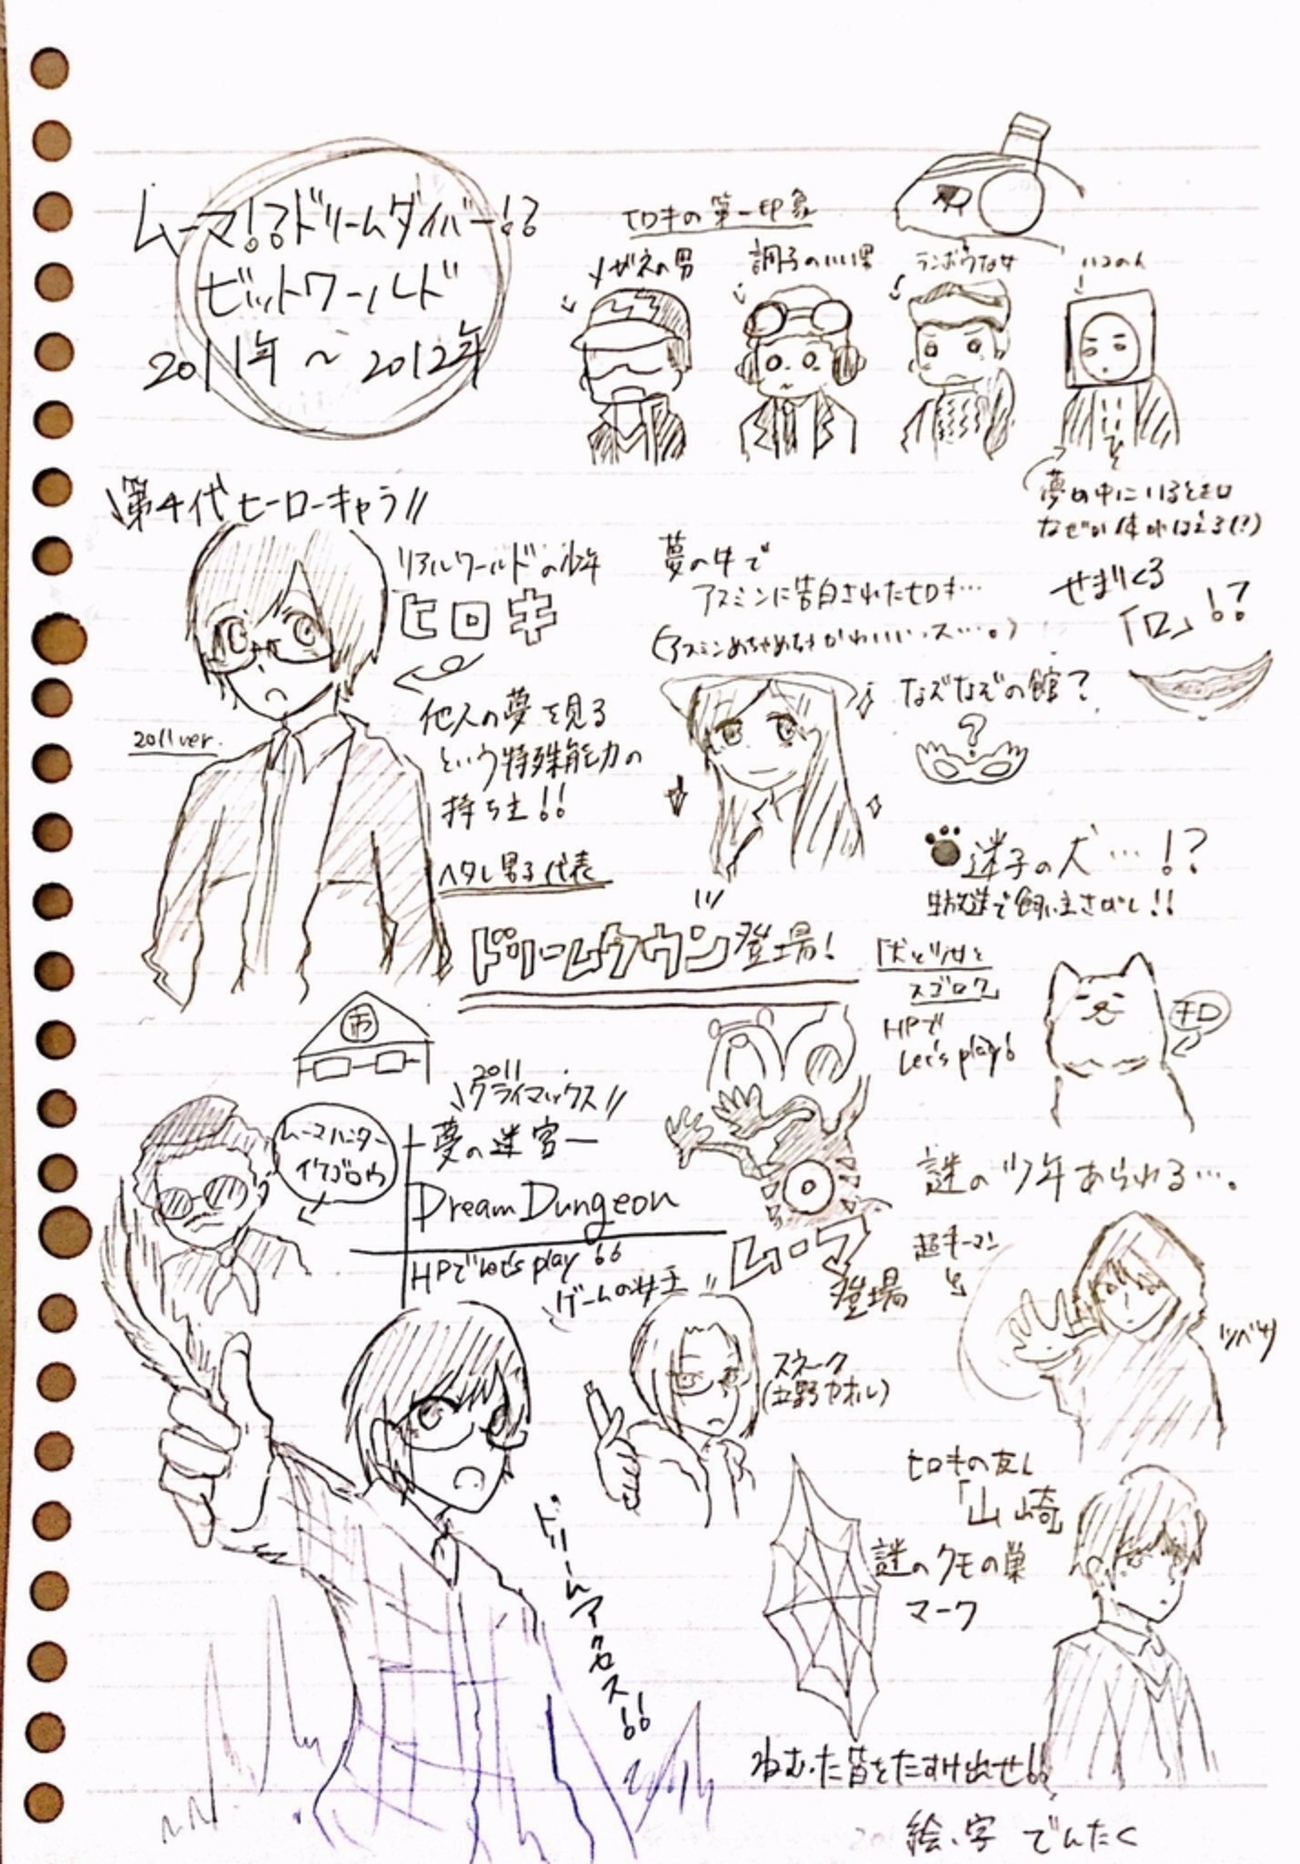 ムーマ!?ドリームダイバー!?
ビットワールド
2011年 ~ 2012年
ヒロキの第一印象
メガネの男
調子のいい男
ランボウな女
ハコの人
夢の中にいるときは
なぜか体がはえる(?)
\第4代ヒーローキャラ//
リアルワールドの少年
ヒロキ
2011 ver.
他人の夢を見る
という特殊能力の
持ち主!!
ヘタレ男子代表
夢の中で
アスミンに告白されたヒロキ…
(アスミンめちゃめちゃかわいいッス…。)
せまりくる
「口」!?
なぞなぞの館?
?
迷子の犬…!?
生放送で飼い主さがし!!
ドリームタウン登場!
スゴロク」
HPで
Let's play!
市
ムーマハンター
イケゴロウ
2011
\クライマックス//
夢の迷宮
Dream Dungeon
HPでLet's play!!
ムーマ
登場
謎の少年あらわる…。
超キーマン
ツバサ
ゲームの女王
スネーク
(立野カオル)
ドリームアクセス!!
ヒロキの友人
「山崎」
謎のクモの巣
マーク
ねむった皆をたすけ出せ!!
絵、字 でんたく